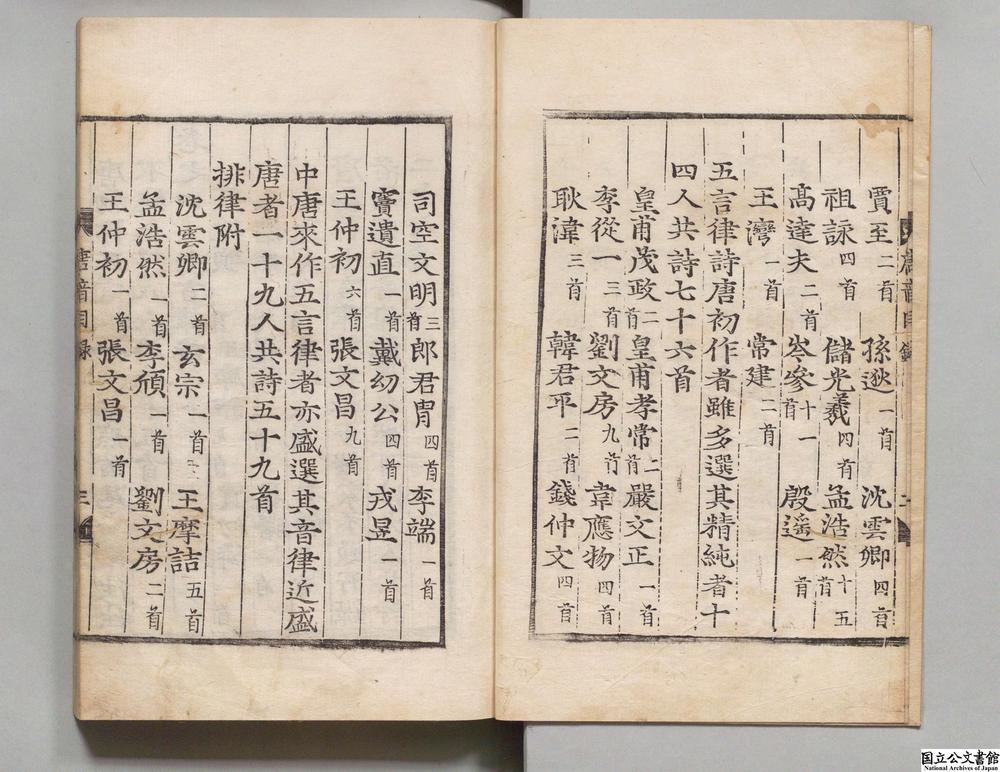 賈至二首 孫逖一首 沈雲卿四首
祖詠四首 儲光羲四首 孟浩然十五首
高達夫二首 岑參十一首 殷遥一首
王灣一首 常建二首
五言律詩唐初作者雖多選其精純者十
四人共詩七十六首
皇甫茂政二首 皇甫孝常二首 嚴文正一首
李從一三首 劉文房九首 韋應物四首
耿湋三首 韓君平二首 錢仲文四首
唐音目錄 二
司空文明三首 郎君胄四首 李端一首
竇遺直一首 戴幼公四首 戎昱一首
王仲初六首 張文昌九首
中唐來作五言律者亦盛選其音律近盛
唐者一十九人共詩五十九首
排律附
沈雲卿二首 玄宗一首 王摩詰五首
孟浩然一首 李頎一首 劉文房二首
王仲初一首 張文昌一首
唐音目錄 三
国立公文書館
National Archives of Japan